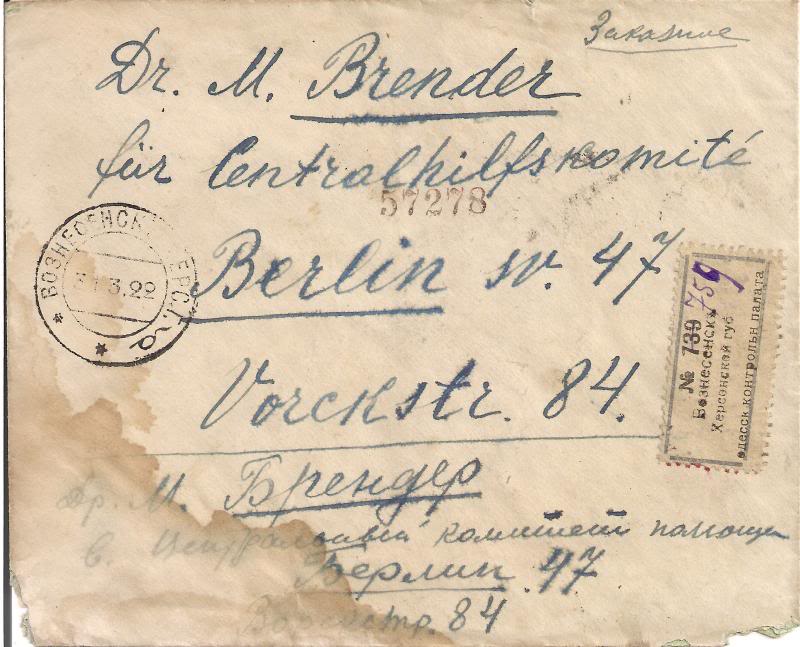 Заказное
Dr. M. Brender
für Centralhilfskomité
57278
Berlin sw. 47
ВОЗНЕСЕНСК ХЕРС. Г.
31.3.22
Vorckstr. 84.
№ 739 759
Вознесенскъ
Херсонской губ
одесск контрольн палата
Др. М. Брендер
Централный комитет помощи
Берлин. 47
Воркстр. 84